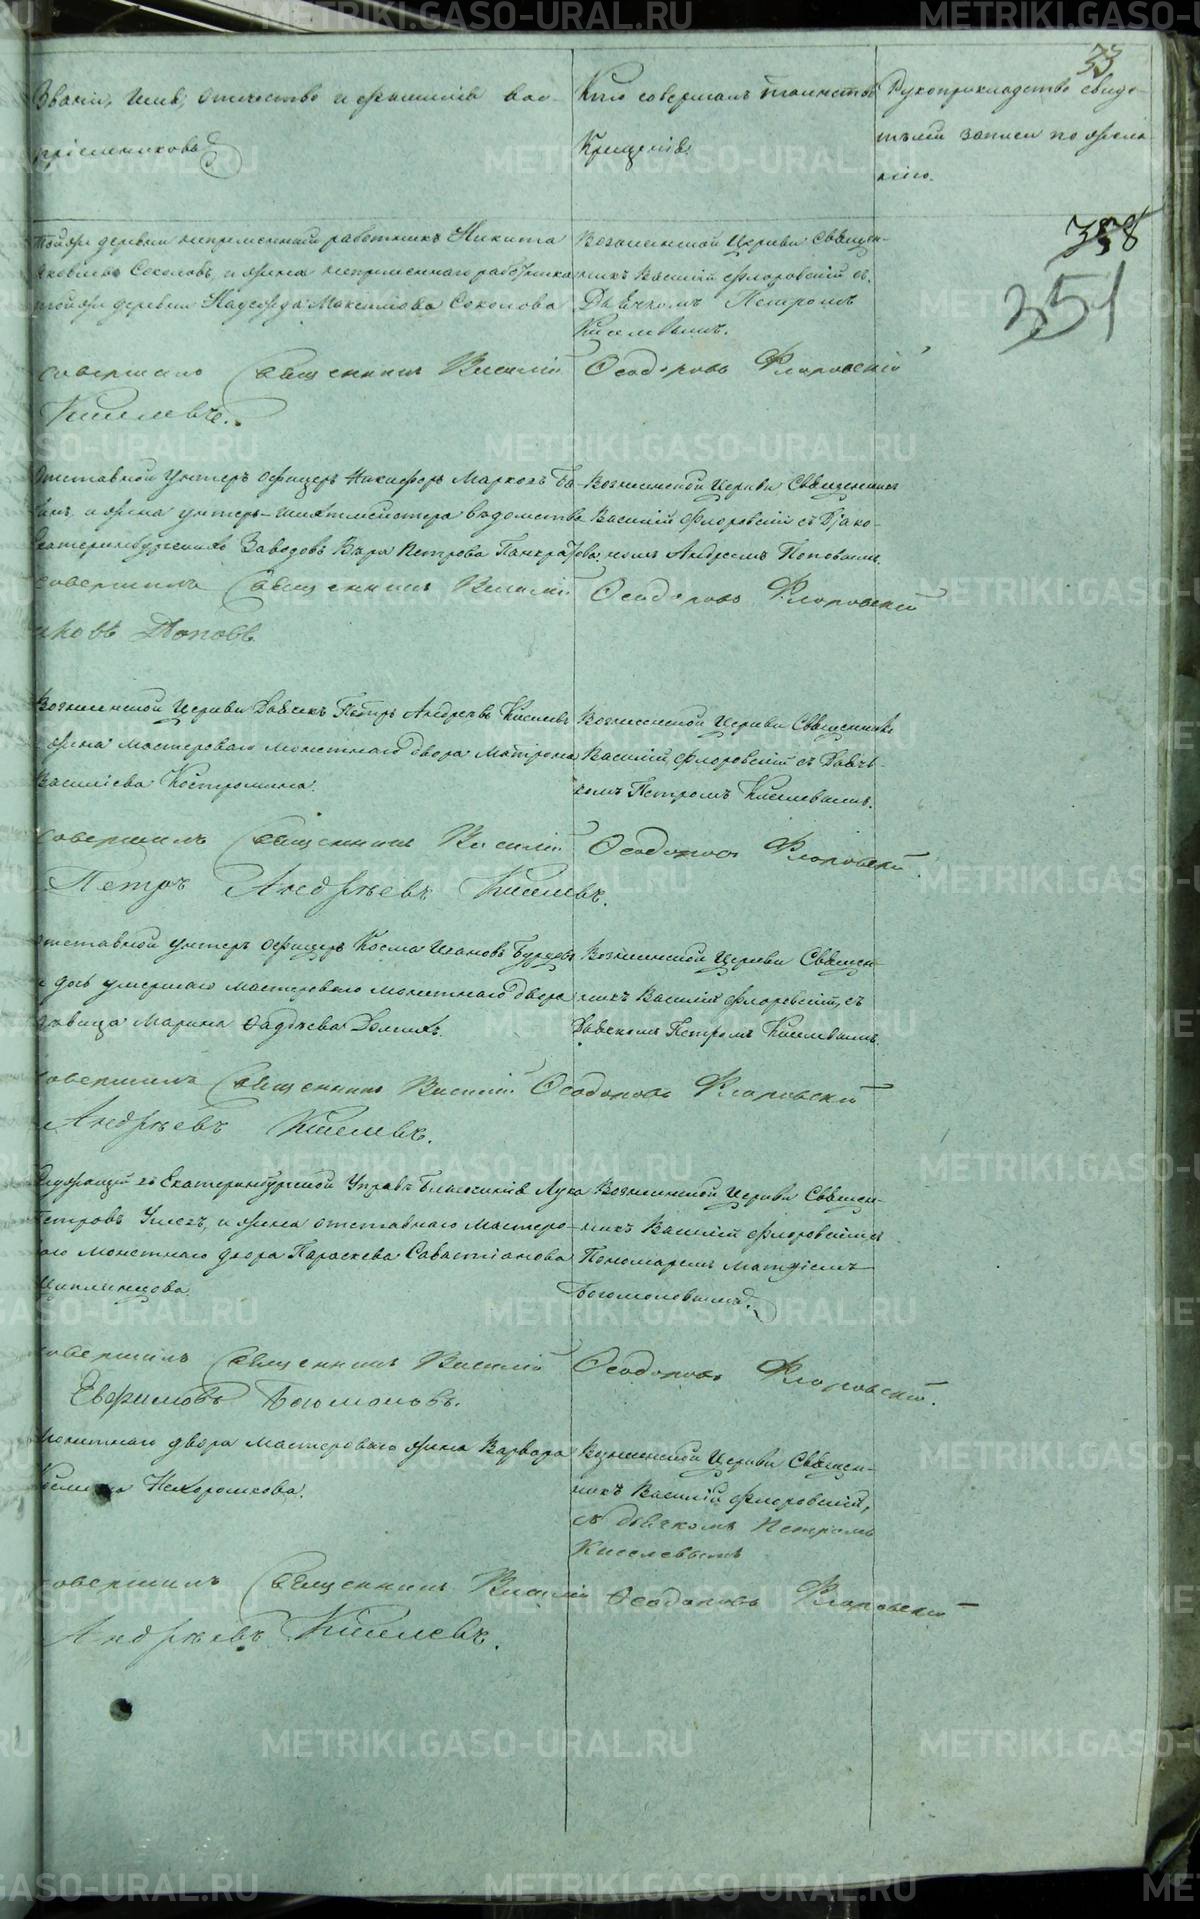 33
Званiе, имя, отечество и фамилiя вос-
прiемниковъ
Кто совершалъ таинство
Крещенiя.
Рукоприкладство свиде-
телей записи по жела-
нiю.
358
351
Тойже деревни непременный работникъ Никита
Яковлевъ Соколовъ, и жена непременнаго работника
тойже деревни Надежда Максимова Соколова
Вознесенской Церкви Священ-
никъ Василiй Флоровскiй съ
Дьячкомъ Петромъ
Киселевымъ.
совершалъ Священникъ Василiй Феодоровъ Флоровскiй
Киселевъ.
Отставной Унтеръ Офицеръ Никифоръ Марковъ
и жена унтеръ-шихтмейстера ведомства
Екатеринбургскихъ Заводовъ Вѣра Петрова Панкратова.
Вознесенской Церкви Священникъ
Василiй Флоровскiй съ Дiако-
номъ Андреемъ Поповымъ.
совершилъ Священникъ Василiй Феодоровъ Флоровскiй
Поповъ
Вознесенской Церкви Дьячекъ Петръ Андреевъ Киселевъ
и жена мастероваго монетнаго двора Матрона
Василiева Костромина.
Вознесенской Церкви Священникъ
Василiй Флоровскiй съ Дьяч-
комъ Петромъ Киселевымъ.
совершилъ Священникъ Василiй Феодоровъ Флоровскiй.
Петръ Андрѣевъ Киселевъ.
Отставной унтеръ офицеръ Косма Ивановъ
и дочь умершаго мастероваго монетнаго двора
девица Марина Фадѣева
Вознесенской Церкви Священ-
никъ Василiй Флоровскiй, съ
Дьячкомъ Петромъ Киселевымъ.
совершилъ Священникъ Василiй Феодоровъ Флоровскiй
Андрѣевъ Киселевъ.
Служащiй въ Екатеринбургской Управѣ Благочинiя Лука
Петровъ и жена отставнаго мастеро-
ваго монетнаго двора Параскева Савастiанова
Цыплинцова.
Вознесенской Церкви Священ-
никъ Василiй Флоровскiй съ
Пономаремъ Матѳiемъ
Богомоловымъ.
совершилъ Священникъ Василiй Феодоровъ Флоровскiй.
Евфимовъ Богомоловъ.
Монетнаго двора мастероваго жена Варвара
Нехорошкова.
Вознесенской Церкви Священ-
никъ Василiй Флоровскiй,
съ дьячкомъ Петромъ
Киселевымъ
совершилъ Священникъ Василiй Феодоровъ Флоровскiй
Андрѣевъ Киселевъ.
METRIKI.GASO-URAL.RU